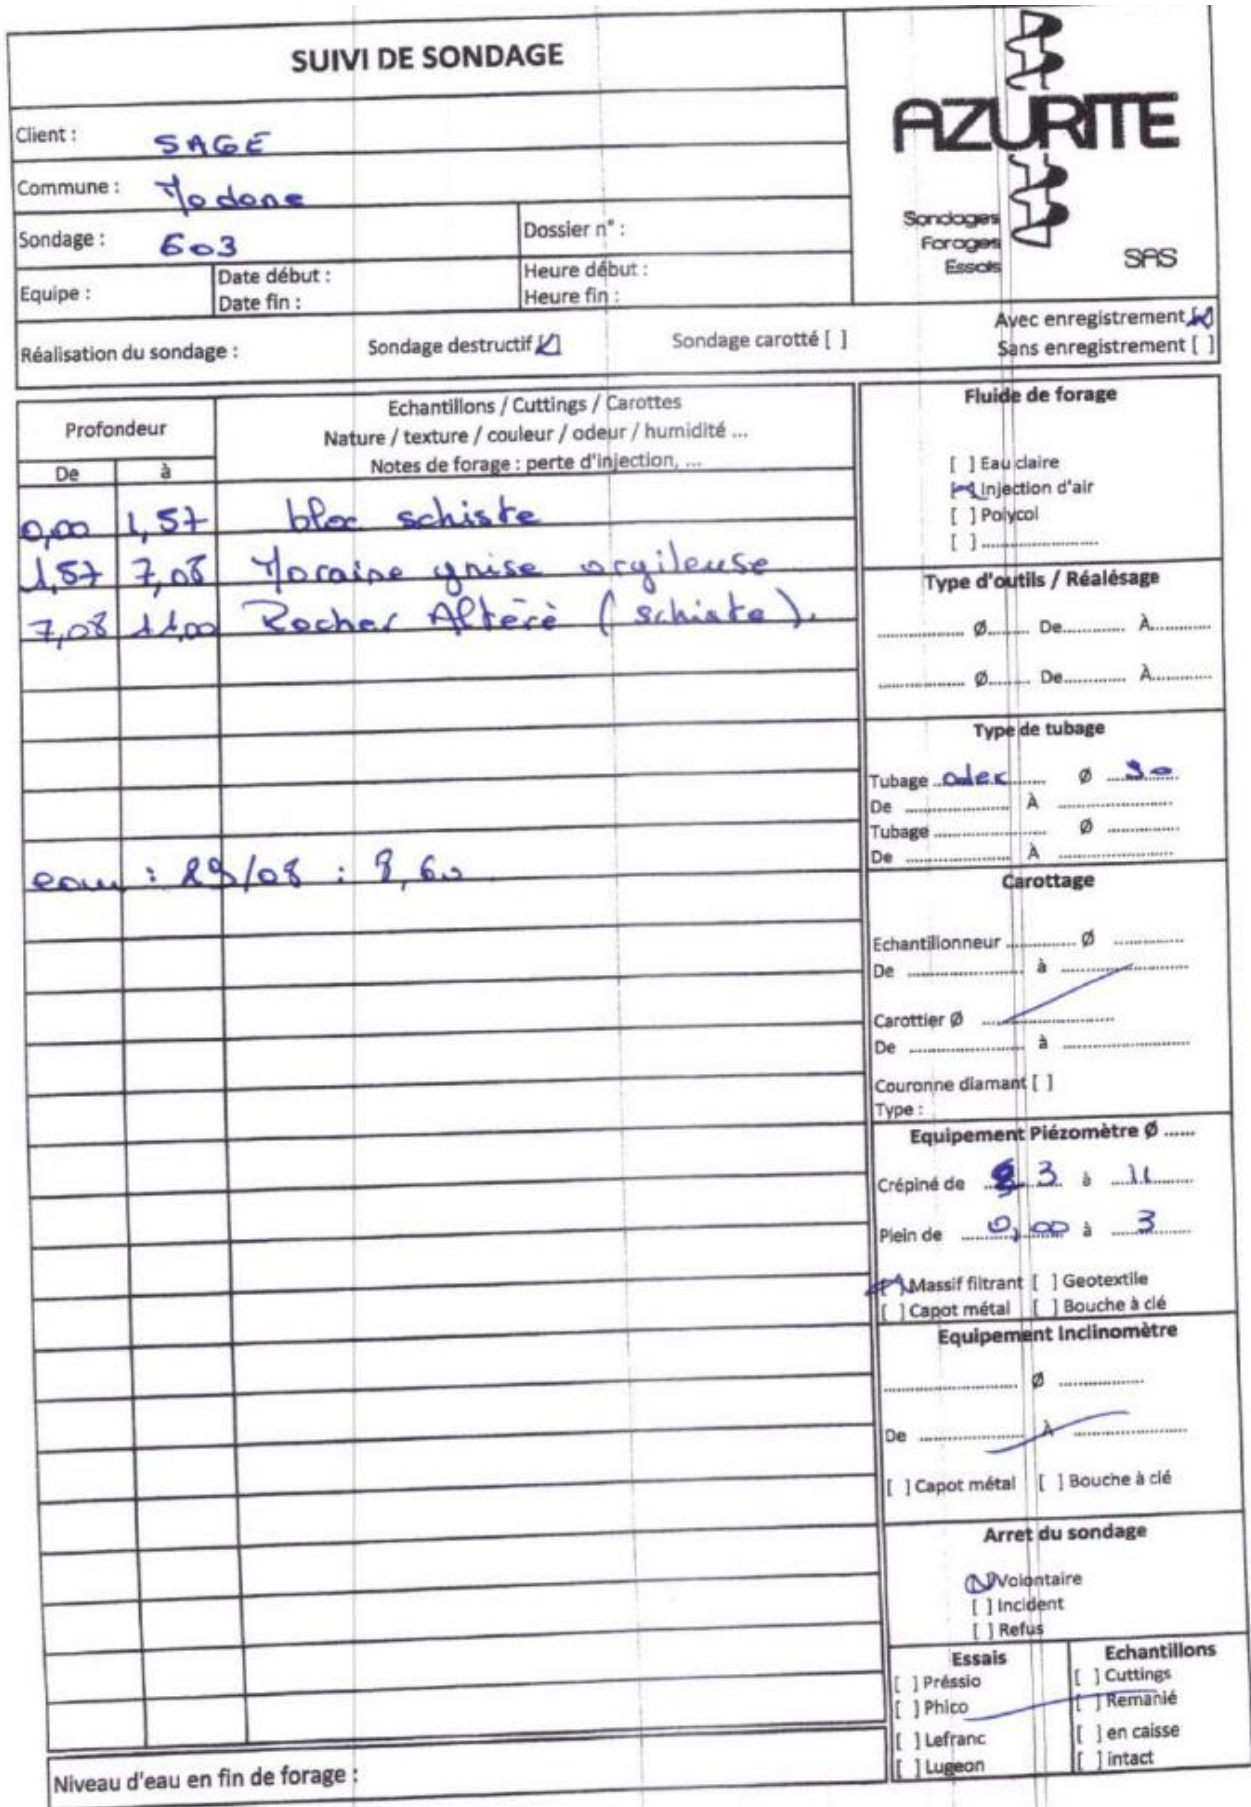 SUIVI DE SONDAGE
AZURITE
Sondages
Forages
Essais
SAS
Client : SAGE
Commune : Modane
Sondage : 603
Dossier n° :
Equipe :
Date début :
Date fin :
Heure début :
Heure fin :
Réalisation du sondage :
Sondage destructif [x]
Sondage carotté [ ]
Avec enregistrement [x]
Sans enregistrement [ ]
Profondeur
De à
Echantillons / Cuttings / Carottes
Nature / texture / couleur / odeur / humidité ...
Notes de forage : perte d'injection, ...
0,00 1,57 bloc schiste
1,57 7,08 Moraine grise argileuse
7,08 11,00 Rocher Altéré (schiste).
eau : 29/08 : 8,60
Fluide de forage
[ ] Eau claire
[x] Injection d'air
[ ] Polycol
[ ] ..........................
Type d'outils / Réalésage
.................... Ø......... De.............. À..............
.................... Ø......... De.............. À..............
Type de tubage
Tubage odex Ø 90
De ...................... À ........................
Tubage ........................ Ø ................
De ...................... À ........................
Carottage
Echantillonneur .............. Ø ..............
De ...................... à ........................
Carottier Ø ..........................
De ...................... à ........................
Couronne diamant [ ]
Type :
Equipement Piézomètre Ø ......
Crépiné de 3 à 11
Plein de 0,00 à 3
[x] Massif filtrant [ ] Geotextile
[ ] Capot métal [ ] Bouche à clé
Equipement Inclinomètre
........................ Ø ................
De ...................... À ........................
[ ] Capot métal [ ] Bouche à clé
Arret du sondage
[x] Volontaire
[ ] Incident
[ ] Refus
Essais
[ ] Préssio
[ ] Phico
[ ] Lefranc
[ ] Lugeon
Echantillons
[ ] Cuttings
[ ] Remanié
[ ] en caisse
[ ] intact
Niveau d'eau en fin de forage :